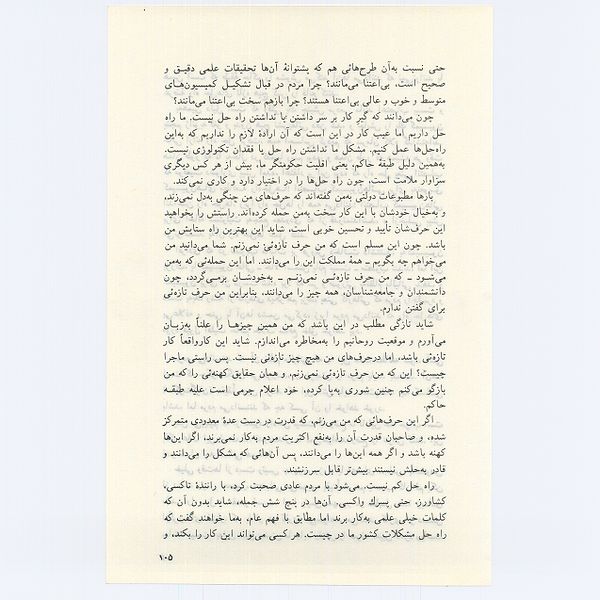 حتی نسبت به‌آن طرح‌هائی هم که پشتوانهٔ آن‌ها تحقیقات علمی دقیق و
صحیح است، بی‌اعتنا می‌مانند؟ چرا مردم در قبال تشکیل کمیسیون‌هـای
متوسط و خوب و عالی بی‌اعتنا هستند؟ چرا بازهم سخت بی‌اعتنا می‌مانند؟
چون می‌دانند که گیرِ کار بر سر داشتن یا نداشتن راه حل نیست. ما راه
حل داریم اما عیب کار در این است که آن ارادهٔ لازم را نداریم که به‌این
راه‌حل‌ها عمل کنیم. مشکل ما نداشتن راه حل یا فقدان تکنولوژی نیست.
به‌همین دلیل طبقهٔ حاکم، یعنی اقلیت حکومتگر ما، بیش از هر کس دیگری
سزاوار ملامت است، چون راه حل‌ها را در اختیار دارد و کاری نمی‌کند.
بارها مطبوعات دولتی به‌من گفته‌اند که حرف‌های من چنگی به‌دل نمی‌زند،
و به‌خیال خودشان با این کار سخت به‌من حمله کرده‌اند. راستش را بخواهید
این حرف‌شان تأیید و تحسین خوبی است، شاید این بهترین راه ستایش من
باشد. چون این مسلم است که من حرف تازه‌ئی نمی‌زنم. شما می‌دانید من
می‌خواهم چه بگویم ــ همهٔ مملکت این را می‌دانند. اما این حمله‌ئی که به‌من
می‌شـود ــ که من حرف تازه‌ئـی نمی‌زنـم ــ به‌خودشـان برمـی‌گردد، چون
دانشمندان و جامعه‌شناسان، همه چیز را می‌دانند، بنابراین من حرف تازه‌ئی
برای گفتن ندارم.
شاید تازگی مطلب در این باشد که من همین چیزهـا را علناً به‌زبـان
می‌آورم و موقعیت روحانیم را به‌مخاطره می‌اندازم. شاید این کارواقعاً کار
تازه‌ئی باشد، اما درحرف‌های من هیچ چیز تازه‌ئی نیست. پس راستی ماجرا
چیست؟ این که من حرف تازه‌ئی نمی‌زنم، و همان حقایق کهنه‌ئی را که من
بازگو می‌کنم چنین شوری به‌پا کرده، خود اعلام جرمی است علیه طبقـه
حاکم.
اگر این حرف‌هائی که من می‌زنم، که قدرت در دست عدهٔ معدودی متمرکز
شده، و صاحبان قدرت آن را به‌نفع اکثریت مردم به‌کار نمی‌برند، اگر این‌ها
کهنه باشد و اگر همه این‌ها را می‌دانند، پس آن‌هائی که مشکل را می‌دانند و
قادر به‌حلش نیستند بیش‌تر قابل سرزنشند.
راه حل کم نیست. می‌شود با مردم عادی صحبت کرد، با رانندهٔ تاکسی،
کشاورز، حتی پسرك واکسی. آن‌ها در پنج شش جمله، شاید بدون آن که
کلمات خیلی علمی به‌کار برند اما مطابق با فهم عام، به‌ما خواهند گفت که
راه حل مشکلات کشور ما در چیست. هر کسی می‌تواند این کار را بکند، و
۱۰۵